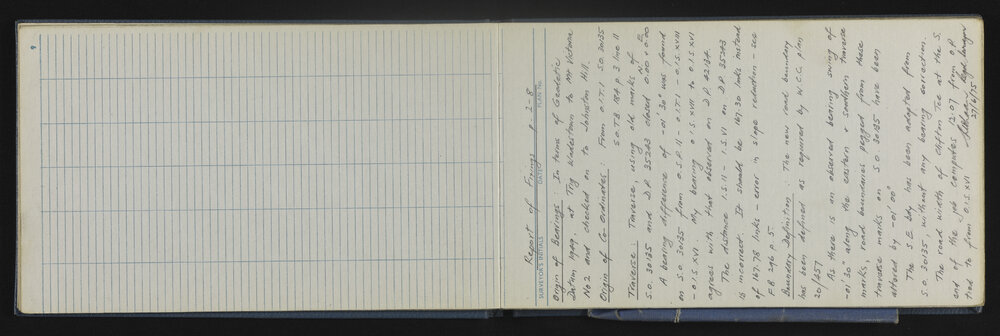 9
Report of Fixings p 2-8
SURVEYOR'S INITIALS DATE PLAN No.
Origin of Bearings: In terms of Geodetic
Datum 1949, at Trig Windestown to Mt Victoria
No 2 and checked on to Johnston Hill.
Origin of Co-Ordinates: From O.I.T.I S.O. 30135
S.O. T.B. 784 p. 3 line 11
Traverse: Traverse, using old marks of N E
S.O. 30135 and D.P. 35243 closed 0.00 + 0.00
A bearing difference of -01'30" was found
on S.O. 30135 from O.S.P. 11 - O.I.T.I - O.I.S. XVIII
- O.I.S XVI. My bearing O.I.S XVIII to O.I.S XVI
agrees with that observed on D.P. 42134.
The distance I.S.11 - I.S.VI on D.P. 35243
is incorrect. It should be 167.30 links instead
of 167.78 links - error in slope reduction - see
F.B. 296 p. 5.
Boundary Definition: The new road boundary
has been defined as required by W.C.C. plan
20/357
As there is an observed bearing swing of
-01'30" along the eastern & southern traverse
marks, road boundaries pegged from these
traverse marks on S.O. 30135 have been
altered by -01'00"
The SE bdy has been adopted from
S.O. 30135, without any bearing correction.
The road width of Clifton Tce at the S.
end of the job computes 12.07 from O.P.
tied to from O.I.S. XVI
Regd. Surveyor
27/6/75